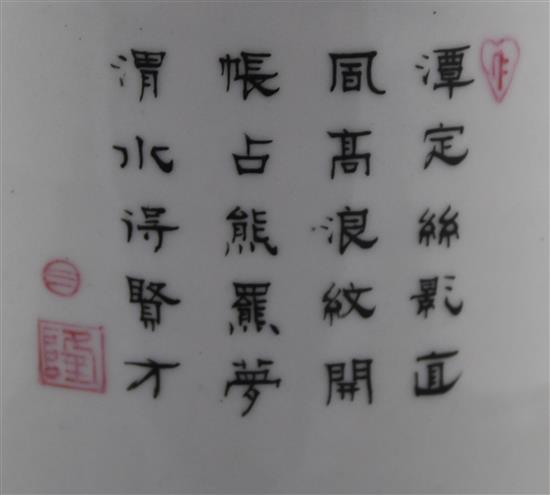 潭定絲影直
風髙浪紋開
帳占熊羆夢
渭水得賢才